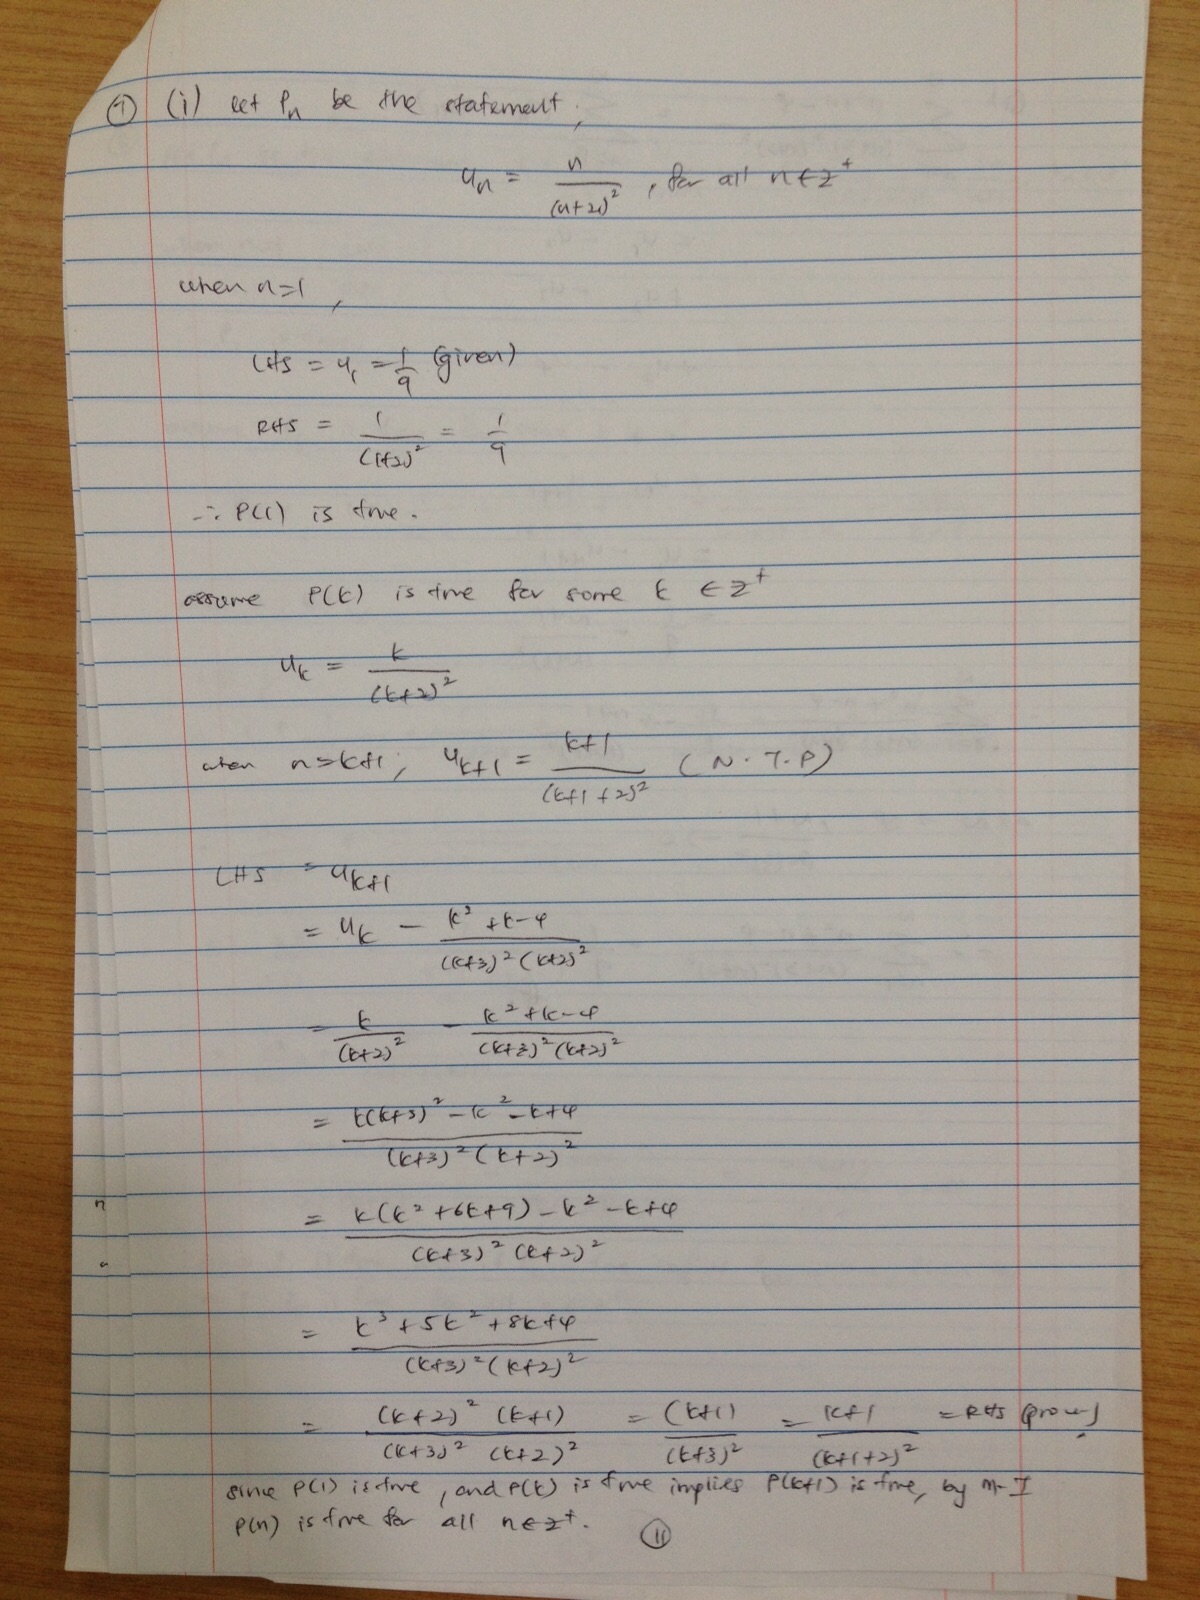 ① (i) let Pn be the statement,
un = n/(n+2)², for all n ∈ Z⁺
when n=1,
LHS = u₁ = 1/9 (given)
RHS = 1/(1+2)² = 1/9
∴ P(1) is true.
assume P(k) is true for some k ∈ Z⁺
uk = k/(k+2)²
when n=k+1, uk+1 = k+1/(k+1+2)² (N.T.P)
LHS = uk+1
= uk − k²+k−4/(k+3)²(k+2)²
= k/(k+2)² − k²+k−4/(k+3)²(k+2)²
= k(k+3)²−k²−k+4/(k+3)²(k+2)²
= k(k²+6k+9)−k²−k+4/(k+3)²(k+2)²
= k³+5k²+8k+4/(k+3)²(k+2)²
= (k+2)²(k+1)/(k+3)²(k+2)² = (k+1)/(k+3)² = k+1/(k+1+2)² = RHS
since P(1) is true, and P(k) is true implies P(k+1) is true, by M.I
P(n) is true for all n ∈ Z⁺.